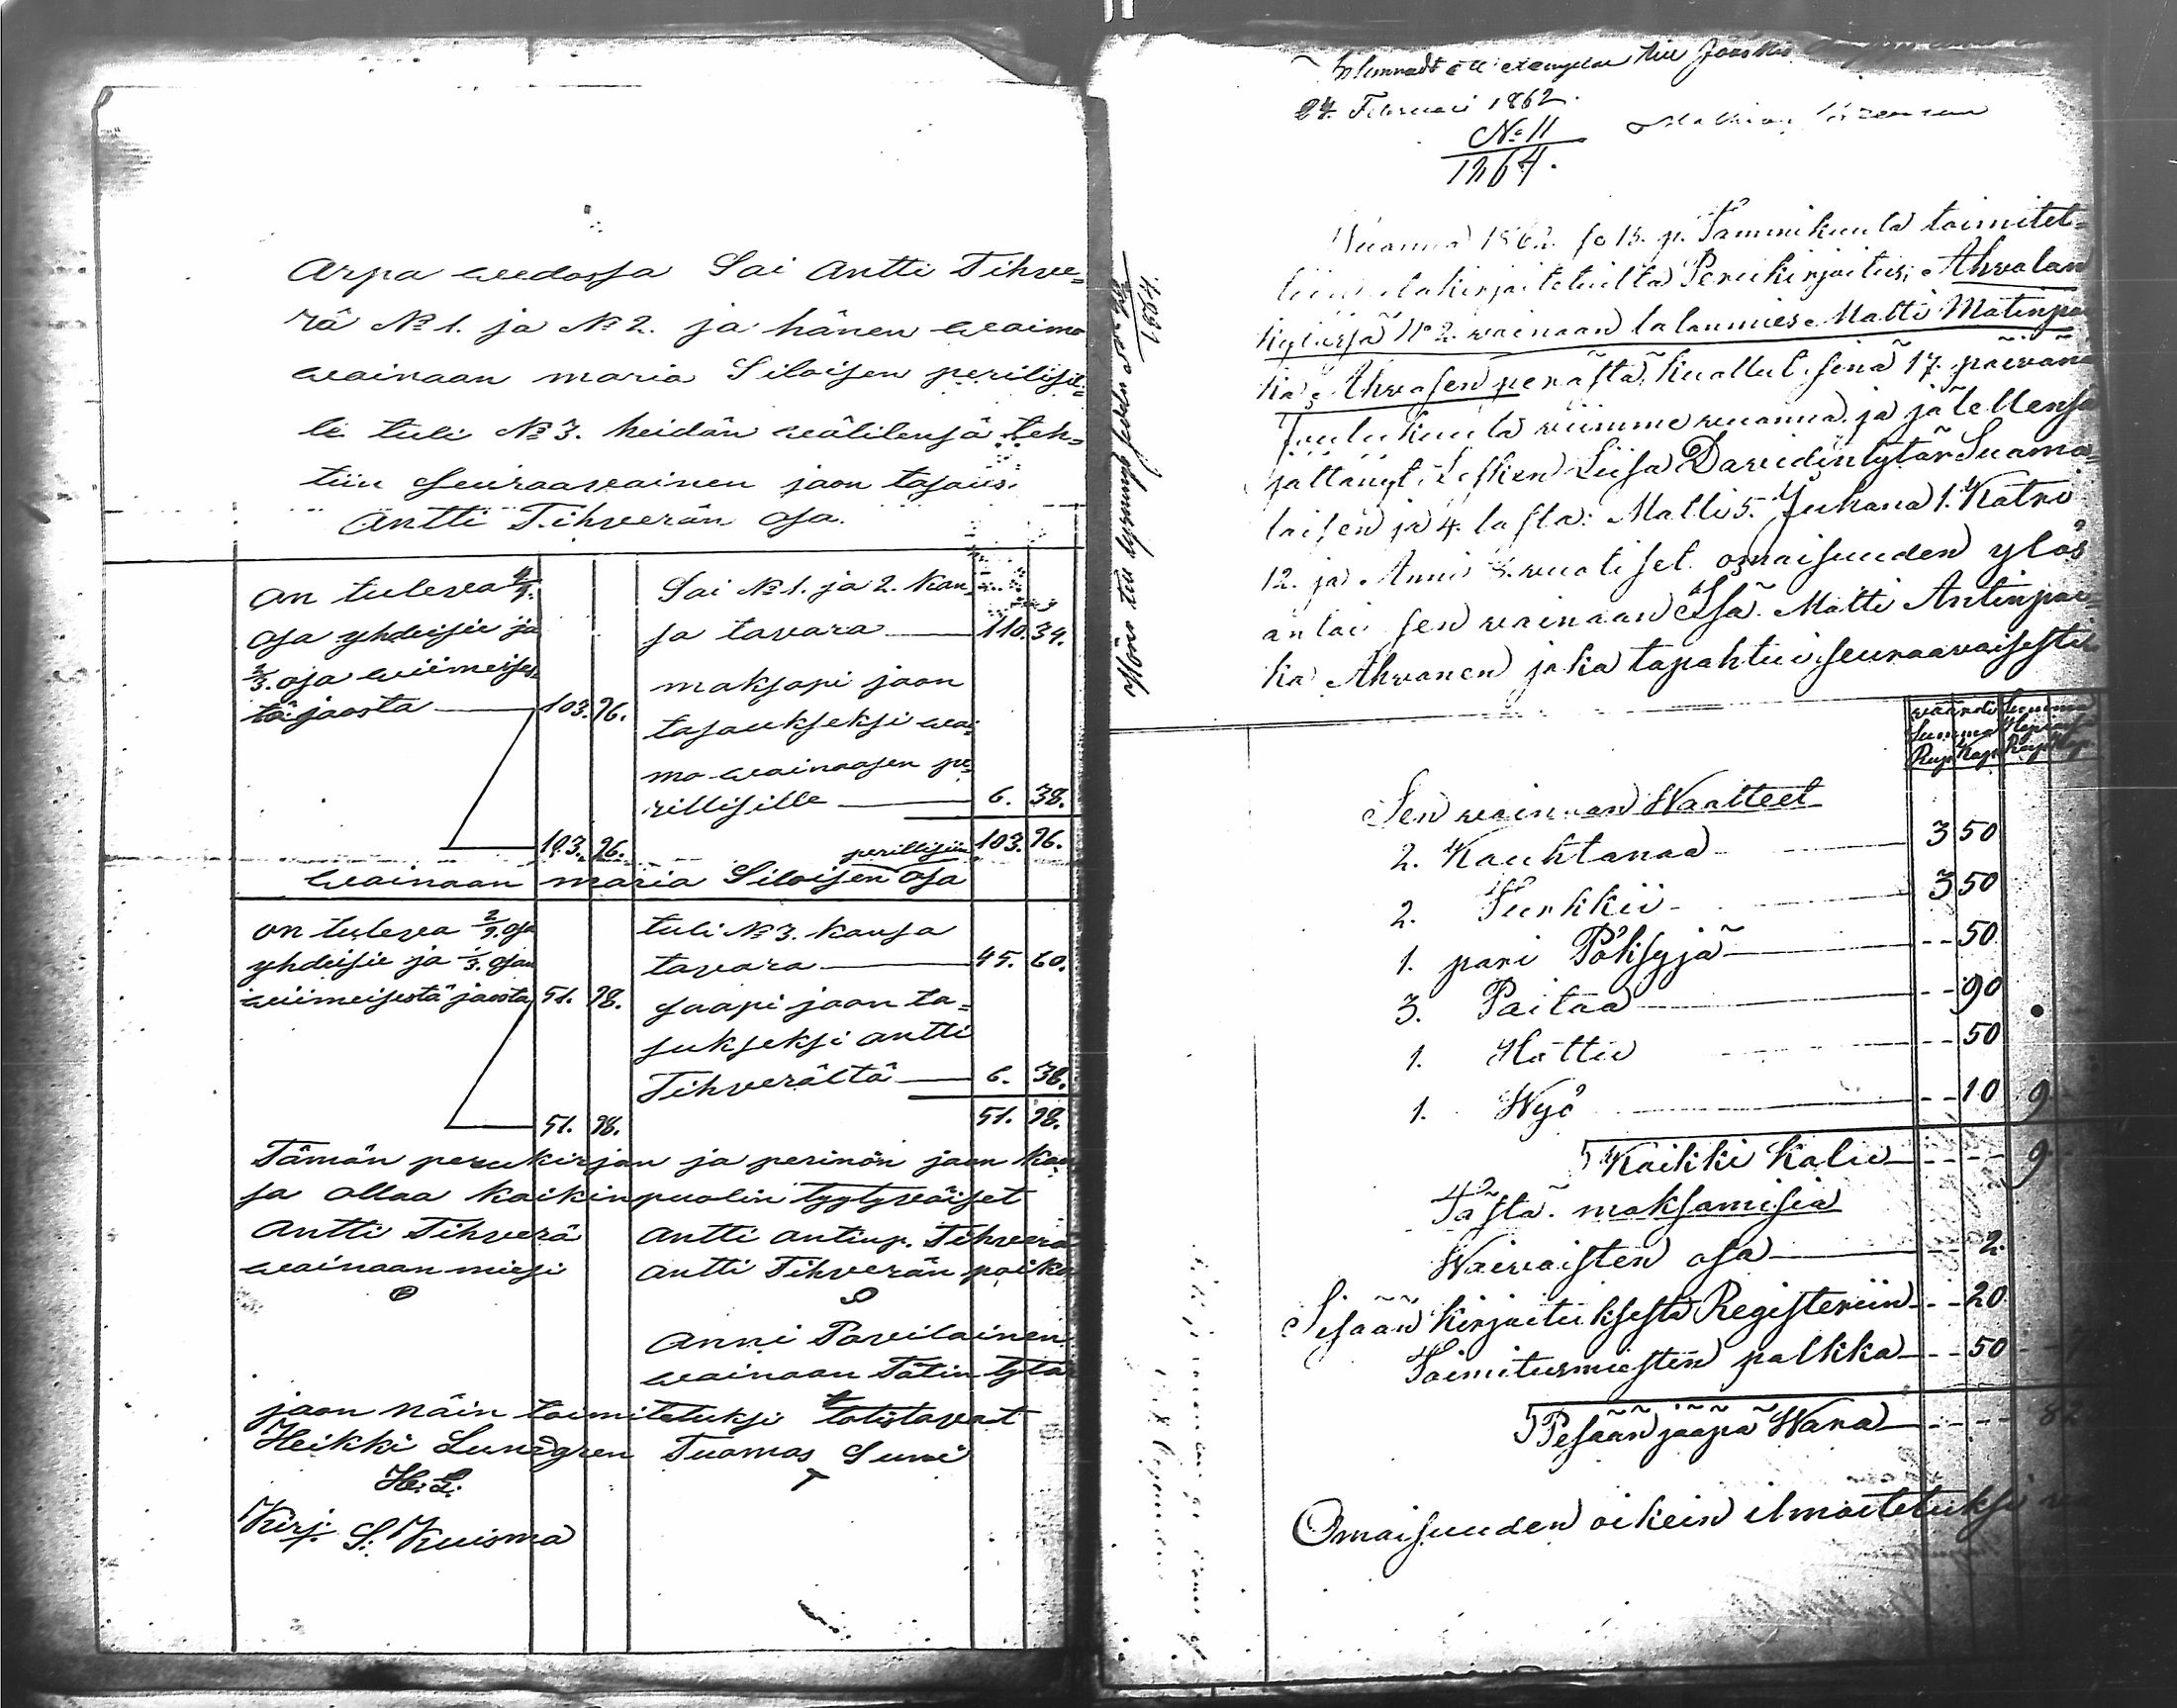 Arpa weedossa Sai Antti Tihve=
rä No 1. ja No 2. ja hänen waimo
wainaan maria Siloisen perilisil=
le tuli No 3. heidän wälilensä teh=
tiin seuraawainen jaon tasaus.
Antti Tihverän osa.
on tuleva 4/9.
osa yhdeisiu ja
2/3. osa wiimeises
tä jaosta 103. 96.
103. 96.
Sai No 1. ja 2. kan
sa tavara 110. 34.
maksapi jaon
tasaukseksi wai
mo wainaasen pe=
rillisille 6. 38.
103. 96.
wainaan maria Siloisen perillisiin osa
on tuleva 2/9. osa
yhdeisiu ja 1/3. osan
wiimeisestä jaosta 51. 98.
51. 98.
tuli No 3. kansa
tavara 45. 60.
saapi jaon ta=
sukseksi antti
Tihverältä 6. 38.
51. 98.
Tämän perukirjan ja perinön jaon kan
sa ollaa kaikinpuolin tyytyväiset
Antti Tihverä
wainaan miesi
Antti antinp. Tihverä
Antti Tihverän poika
Anni Pavilainen
wainaan Tätin tytär
jaon näin toimitetuksi totistavat
Heikki Lundgren Tuomas Suni
H. L.
Kirj. S. Kuisma
Inlemnadt till Jääskis
24 Februari 1862.
No 11
1864.
Vuonna 1862 se 13. p. Tammikuula toimitet=
Perukirjoitus, Ahvolan
kylässä No 2. wainaan talanmies Matti Matinpoi
ka Ahvosen perästä, kuollut senä 17. päivänä
Joulukuula viimme vuonna, ja jälellensä
jättänyt: Lesken Liisa Davidintytär Suama=
laisen ja 4. lasta: Matti 5. Juhana 1. Katri
12. ja Anni 8. vuotiset. omaisuuden ylös
antai sen wainaan Isä Matti Antinpoi=
ka Ahvanen joka tapahtui seuraavaisesti.
Summa
Rup. Kap. Rup. Kop.
Sen wainaan Waatteet
2. Kauhtanaa 3 50
2. Turkkii 3 50
1. pari Pöksyjä 50
3. Paitaa 90
1. Hattu 50
1. Wyö 10 9
Kaikki Kalu 9
Tästä maksamisia
Waivaisten osa 2.
Sisään kirjoituksesta Registeriin 20
Toimitusmiesten palkka 50
Pesään jääpä Wara 8
Omaisuuden oikein ilmoitetuksi